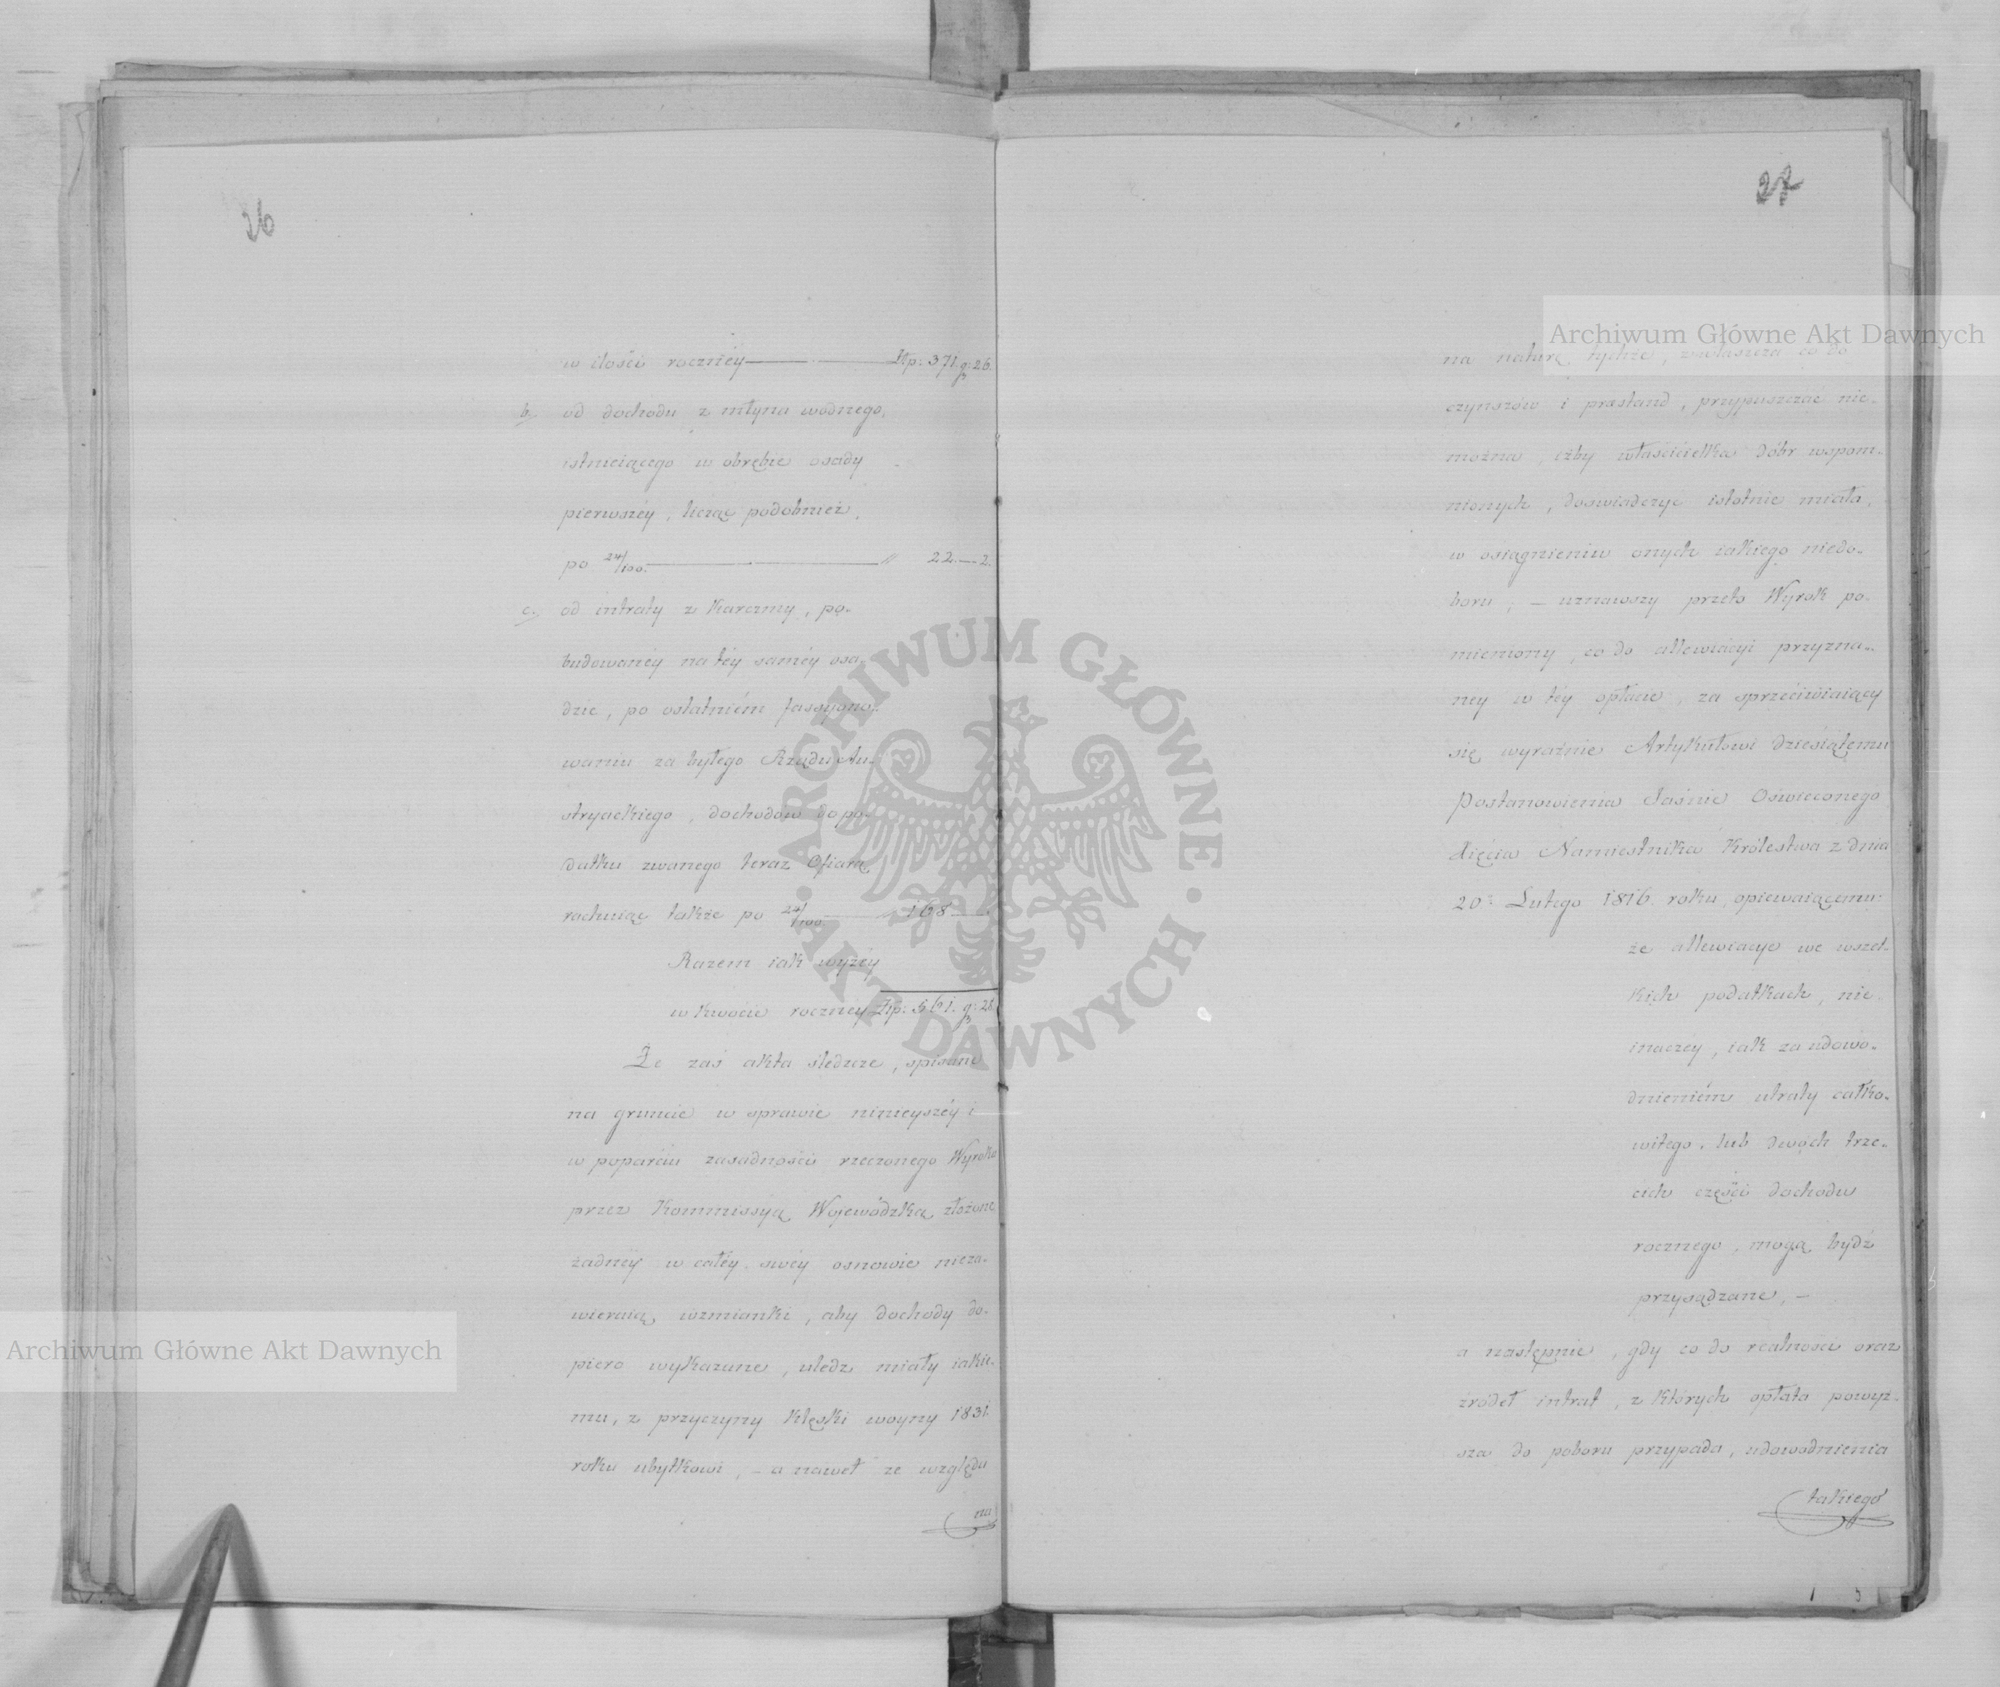 26
w ilości roczney Złp: 371. gr: 26.
b. od dochodu z młyna wodnego,
istnieiącego w obrębie osady
pierwszéy, licząc podobnież,
po 24/100. " 22.—2.
c. od intraty z karczmy, po-
budowanéy na téy saméy osa-
dzie, po ostatniém fassyono-
waniu za byłego Rządu Au-
stryackiego, dochodów do po-
datku zwanego teraz Ofiarą
rachuiąc także po 24/100 " 168.—
Razem iak wyżéy
w kwocie roczney Złp: 561. gr: 28.
Że zaś akta śledcze, spisane
na gruncie w sprawie ninieyszéy i
w poparciu zasadności rzeczonego Wyroku
przez Kommissyą Woiewódzką złożone
żadnéy w całéy swéy osnowie nieza-
wieraią wzmianki, aby dochody do-
piero wykazane, uledz miały iakie-
mu, z przyczyny klęski woyny 1831.
roku ubytkowi, – a nawet ze względu
na
27
na naturę tychże, zwłaszcza co do
czynszów i prestand, przypuszczać nie-
można, ażby właścicielka dóbr wspom-
nionych, doświadczyć istotnie miała,
w osiągnieniu onych iakiego niedo-
boru; – uznawszy przeto Wyrok po-
mieniony, co do allewiacyi przyzna-
ney w téy opłacie, za sprzeciwiaiący
się wyraźnie Artykułowi dziesiątemu
Postanowienia Jaśnie Oświeconego
Xięcia Namiestnika Królestwa z dnia
20. Lutego 1816. roku, opiewaiącemu:
że allewiacye we wszel-
kich podatkach, nie-
inaczey, iak za udowo-
dnieniém utraty całko-
witego, lub dwóch trze-
cich części dochodu
rocznego, mogą bydź
przysądzane, –
a następnie, gdy co do realności oraz
źródeł intrat, z których opłata powyż-
sza do poboru przypada, udowodnienia
takiego
1 5
Archiwum Główne Akt Dawnych
Archiwum Główne Akt Dawnych
ARCHIWUM GŁÓWNE · AKT DAWNYCH ·